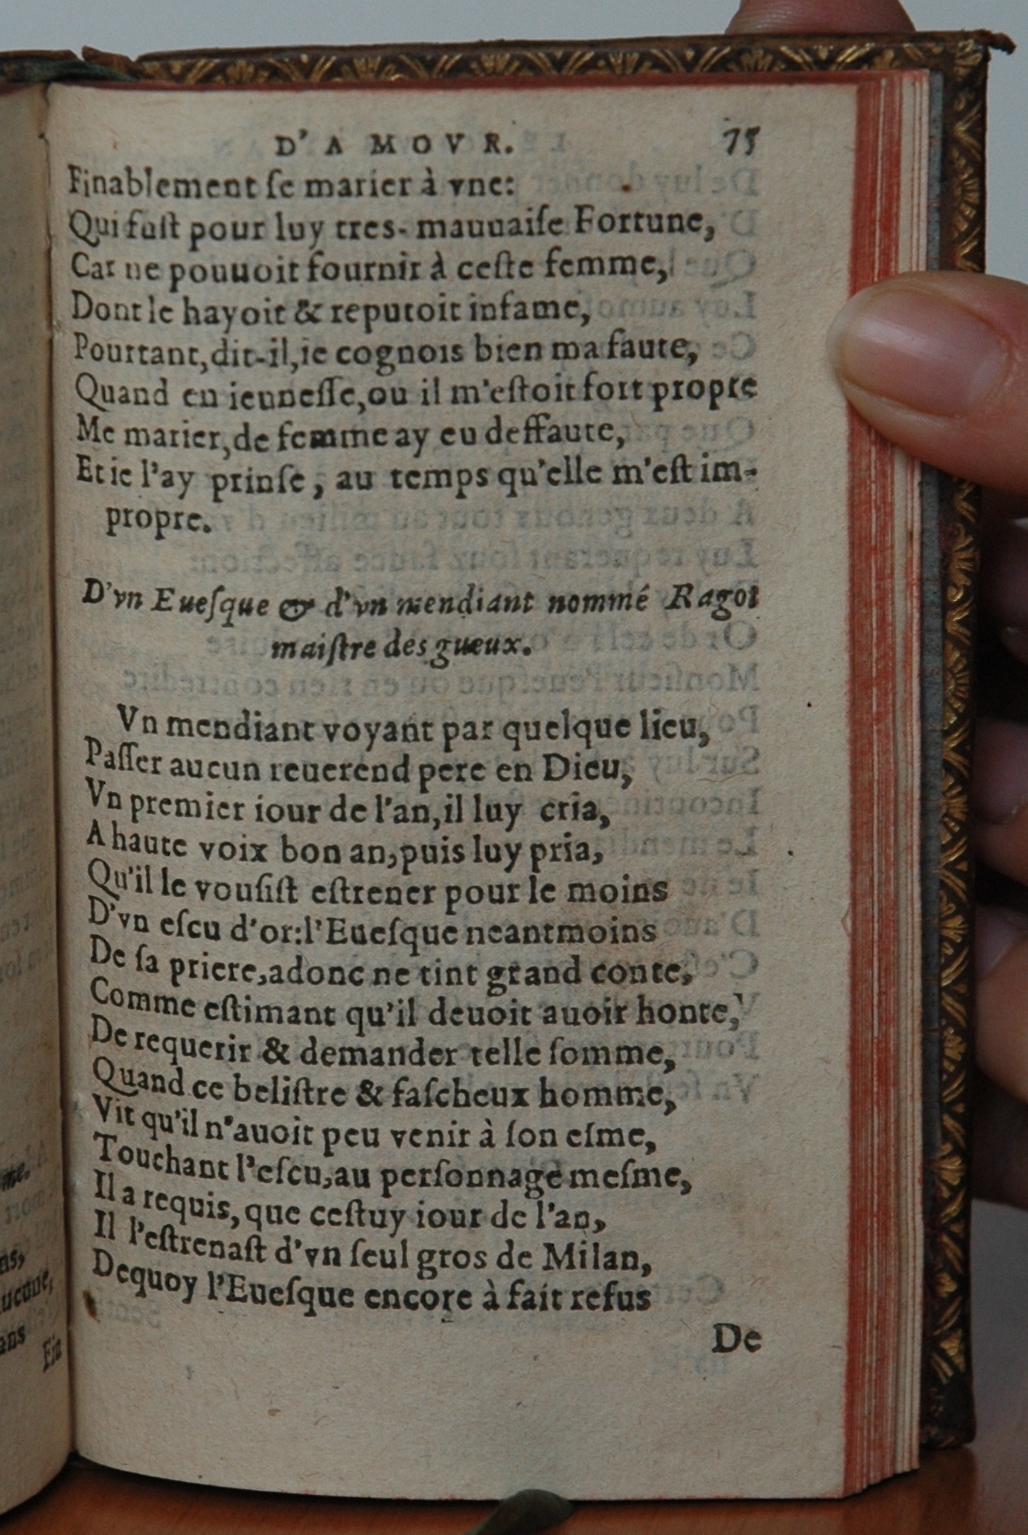 D'AMOVR. 75
Finablement ſe marier à vne:
Qui fuſt pour luy tres-mauuaiſe Fortune,
Car ne pouuoit fournir à ceſte femme,
Dont le hayoit & reputoit infame,
Pourtant,dit-il,ie cognois bien ma faute,
Quand en ieuneſſe,ou il m'eſtoit fort propre
Me marier,de femme ay eu deffaute,
Et ie l'ay prinſe, au temps qu'elle m'eſt im-
propre.
D'vn Eueſque & d'vn mendiant nommé Ragot
maiſtre des gueux.
Vn mendiant voyant par quelque lieu,
Paſſer aucun reuerend pere en Dieu,
Vn premier iour de l'an,il luy cria,
A haute voix bon an,puis luy pria,
Qu'il le vouſiſt eſtrener pour le moins
D'vn eſcu d'or:l'Eueſque neantmoins
De ſa priere,adonc ne tint grand conte,
Comme eſtimant qu'il deuoit auoir honte,
De requerir & demander telle ſomme,
Quand ce beliſtre & faſcheux homme,
Vit qu'il n'auoit peu venir à ſon eſme,
Touchant l'eſcu,au perſonnage meſme,
Il a requis,que ceſtuy iour de l'an,
Il l'eſtrenaſt d'vn ſeul gros de Milan,
Dequoy l'Eueſque encore à fait refus
De